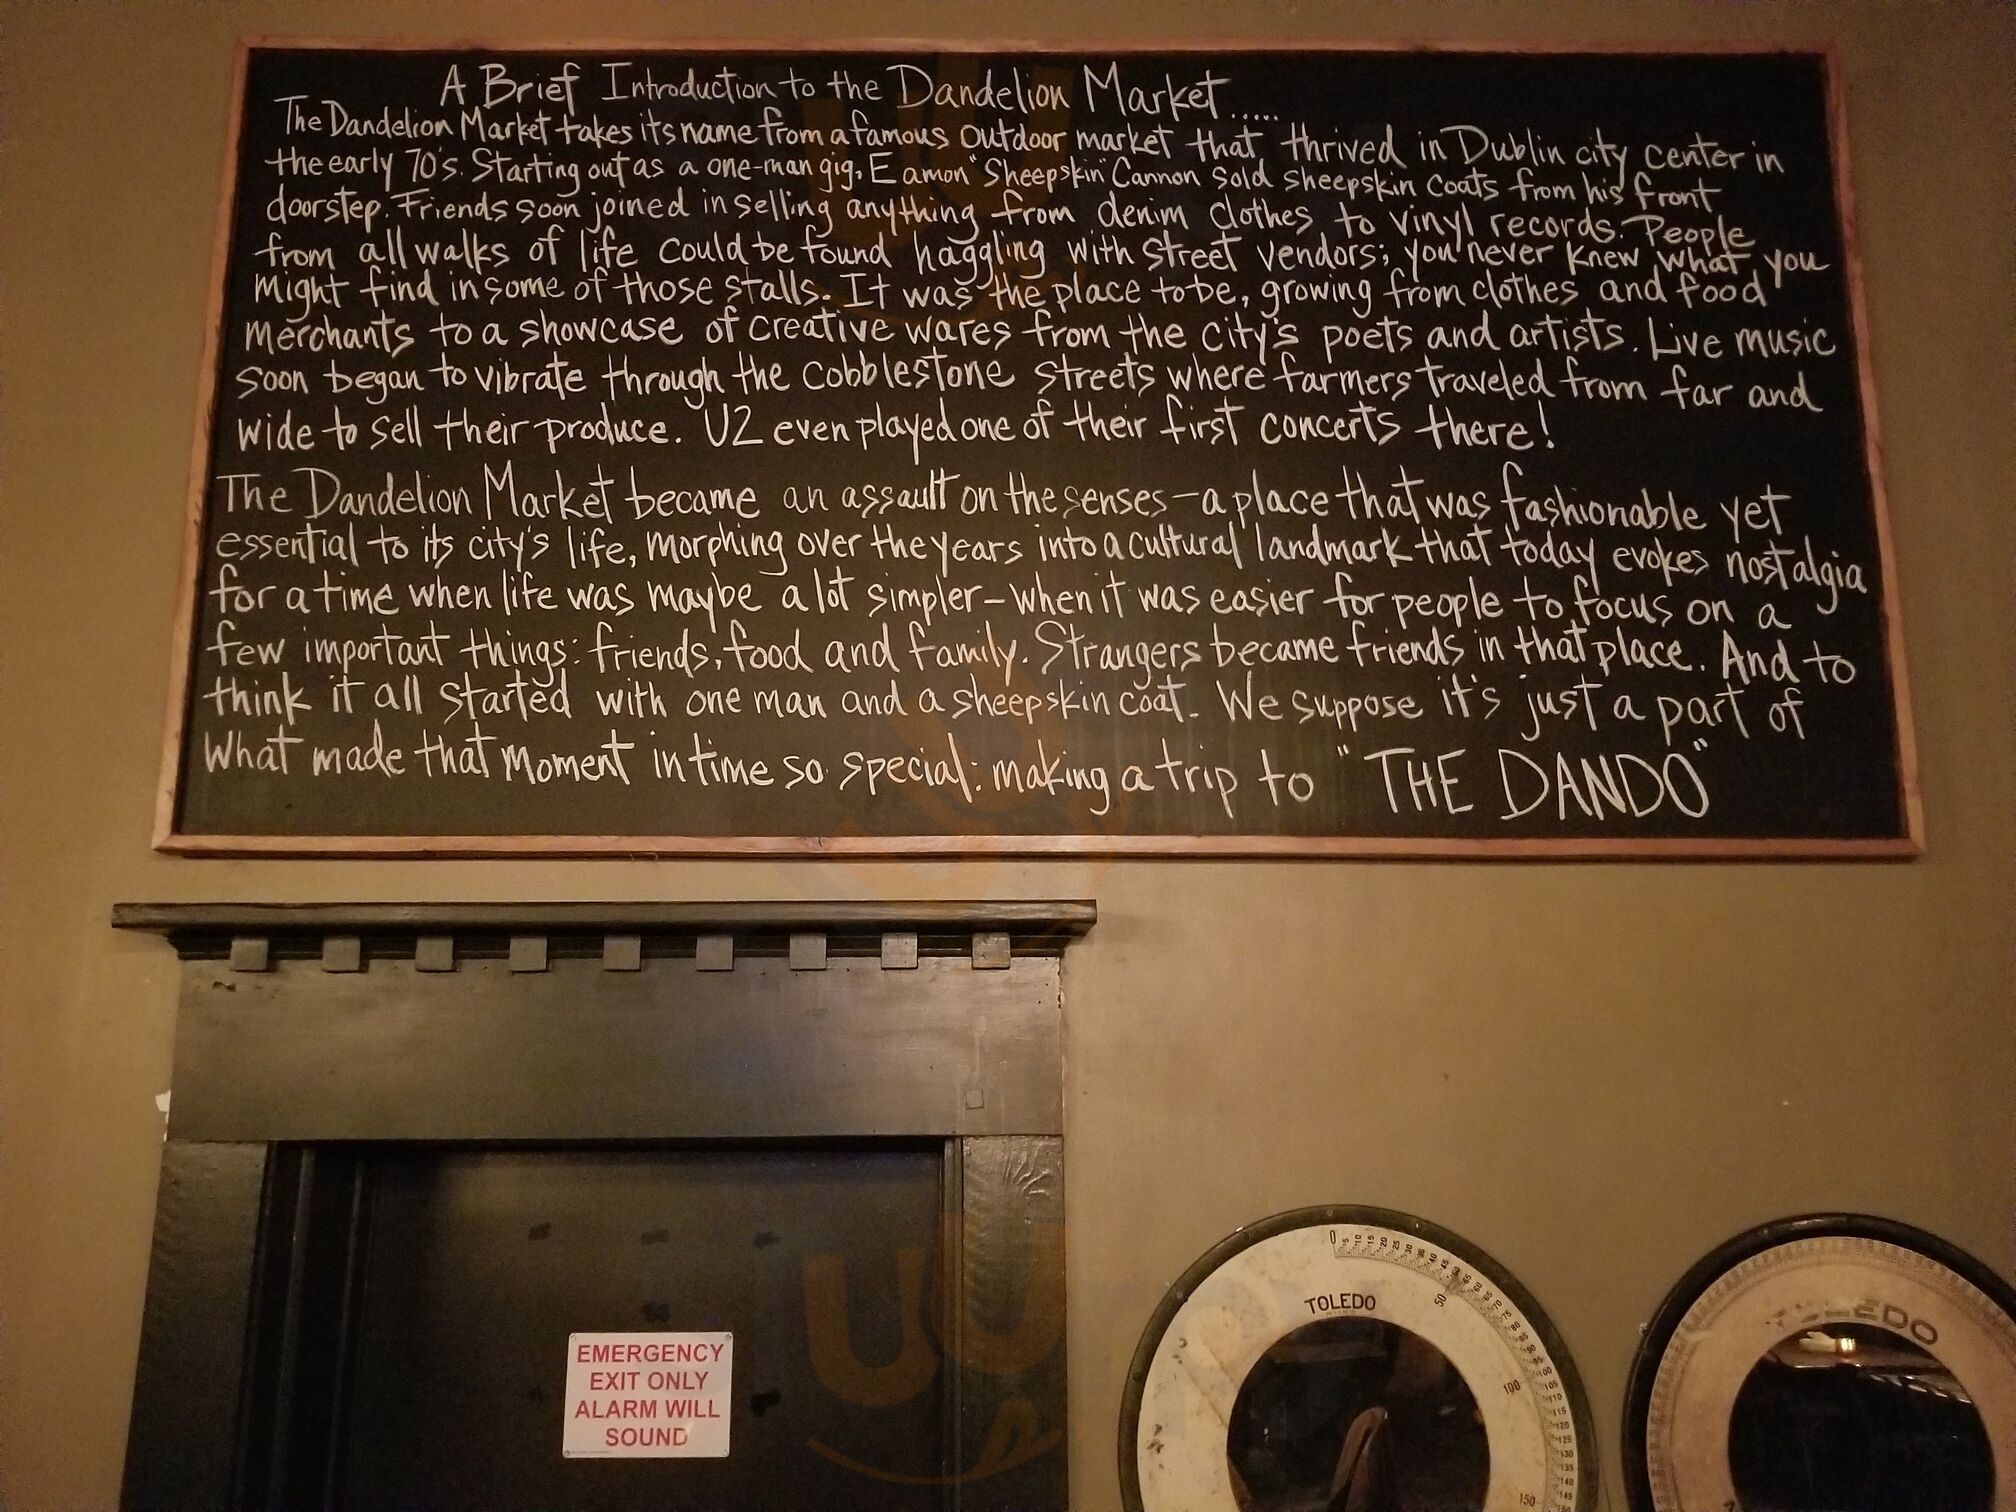 A Brief Introduction to the Dandelion Market.....
The Dandelion Market takes its name from a famous outdoor market that thrived in Dublin city center in
the early 70's. Starting out as a one-man gig, Eamon "Sheepskin" Cannon sold sheepskin coats from his front
doorstep. Friends soon joined in selling anything from denim clothes to vinyl records. People
from all walks of life could be found haggling with street vendors; you never knew what you
might find in some of those stalls. It was the place to be, growing from clothes and food
merchants to a showcase of creative wares from the city's poets and artists. Live music
soon began to vibrate through the cobblestone streets where farmers traveled from far and
wide to sell their produce. U2 even played one of their first concerts there!
The Dandelion Market became an assault on the senses - a place that was fashionable yet
essential to its city's life, morphing over the years into a cultural landmark that today evokes nostalgia
for a time when life was maybe a lot simpler - when it was easier for people to focus on a
few important things: friends, food and family. Strangers became friends in that place. And to
think it all started with one man and a sheepskin coat. We suppose it's just a part of
what made that moment in time so special: making a trip to "THE DANDO"
EMERGENCY
EXIT ONLY
ALARM WILL
SOUND
TOLEDO
0 5 10 15 20 25 30 35 40 45 50 55 60 65 70 75 80 85 90 95 100 105 110 115 120 125 130 135 140 145 150
50
100
150
TOLEDO